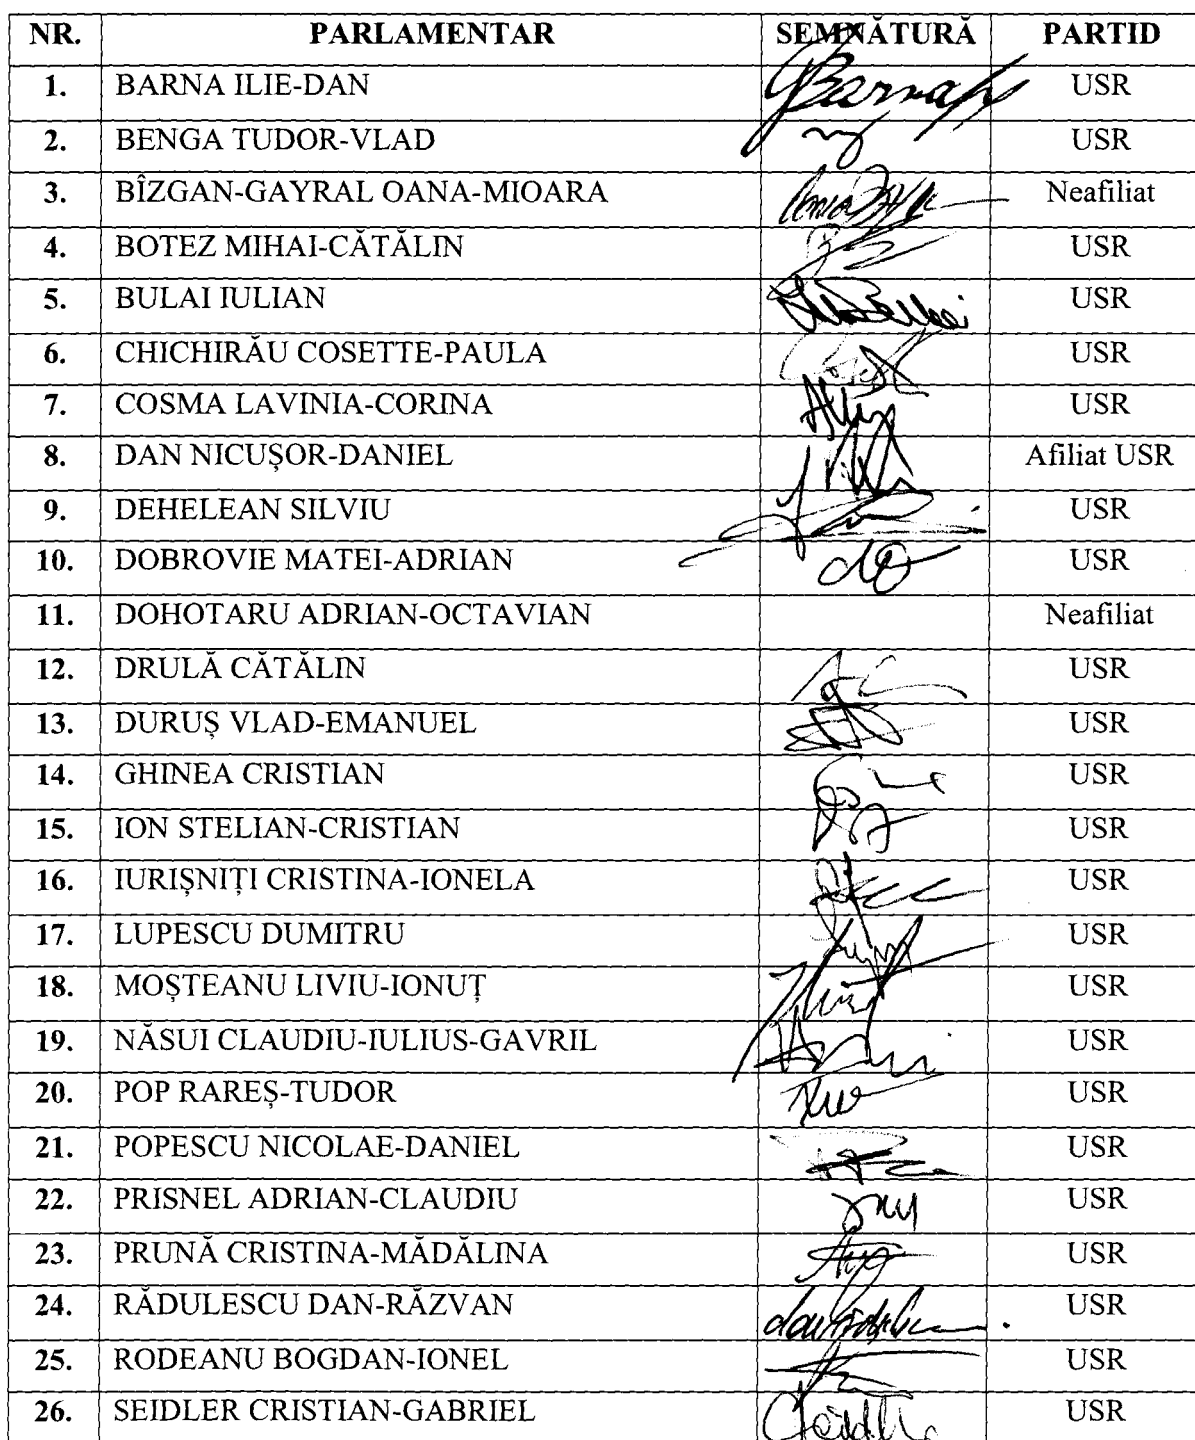 NR. PARLAMENTAR SEMNĂTURĂ PARTID
1. BARNA ILIE-DAN Barna USR
2. BENGA TUDOR-VLAD USR
3. BÎZGAN-GAYRAL OANA-MIOARA Neafiliat
4. BOTEZ MIHAI-CĂTĂLIN USR
5. BULAI IULIAN USR
6. CHICHIRĂU COSETTE-PAULA USR
7. COSMA LAVINIA-CORINA USR
8. DAN NICUȘOR-DANIEL Afiliat USR
9. DEHELEAN SILVIU USR
10. DOBROVIE MATEI-ADRIAN USR
11. DOHOTARU ADRIAN-OCTAVIAN Neafiliat
12. DRULĂ CĂTĂLIN USR
13. DURUȘ VLAD-EMANUEL USR
14. GHINEA CRISTIAN USR
15. ION STELIAN-CRISTIAN USR
16. IURIȘNIȚI CRISTINA-IONELA USR
17. LUPESCU DUMITRU USR
18. MOȘTEANU LIVIU-IONUȚ USR
19. NĂSUI CLAUDIU-IULIUS-GAVRIL USR
20. POP RAREȘ-TUDOR USR
21. POPESCU NICOLAE-DANIEL USR
22. PRISNEL ADRIAN-CLAUDIU USR
23. PRUNĂ CRISTINA-MĂDĂLINA USR
24. RĂDULESCU DAN-RĂZVAN USR
25. RODEANU BOGDAN-IONEL USR
26. SEIDLER CRISTIAN-GABRIEL USR